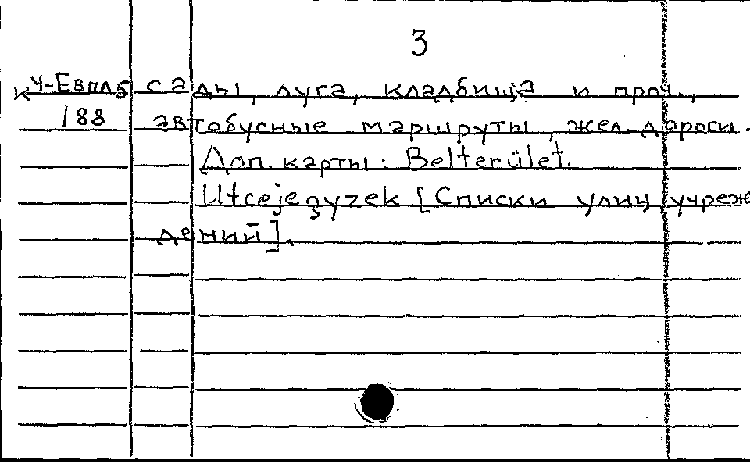 3
К 4-Евпл5 сады, луга, кладбища и проч.,
188 автобусные маршруты, жел. дороги.
Доп. карты: Belterület.
Utcajegyzek [Списки улиц, учреж
дений].